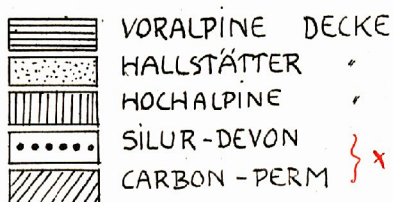 VORALPINE DECKE
HALLSTÄTTER "
HOCHALPINE "
SILUR-DEVON
CARBON-PERM } x